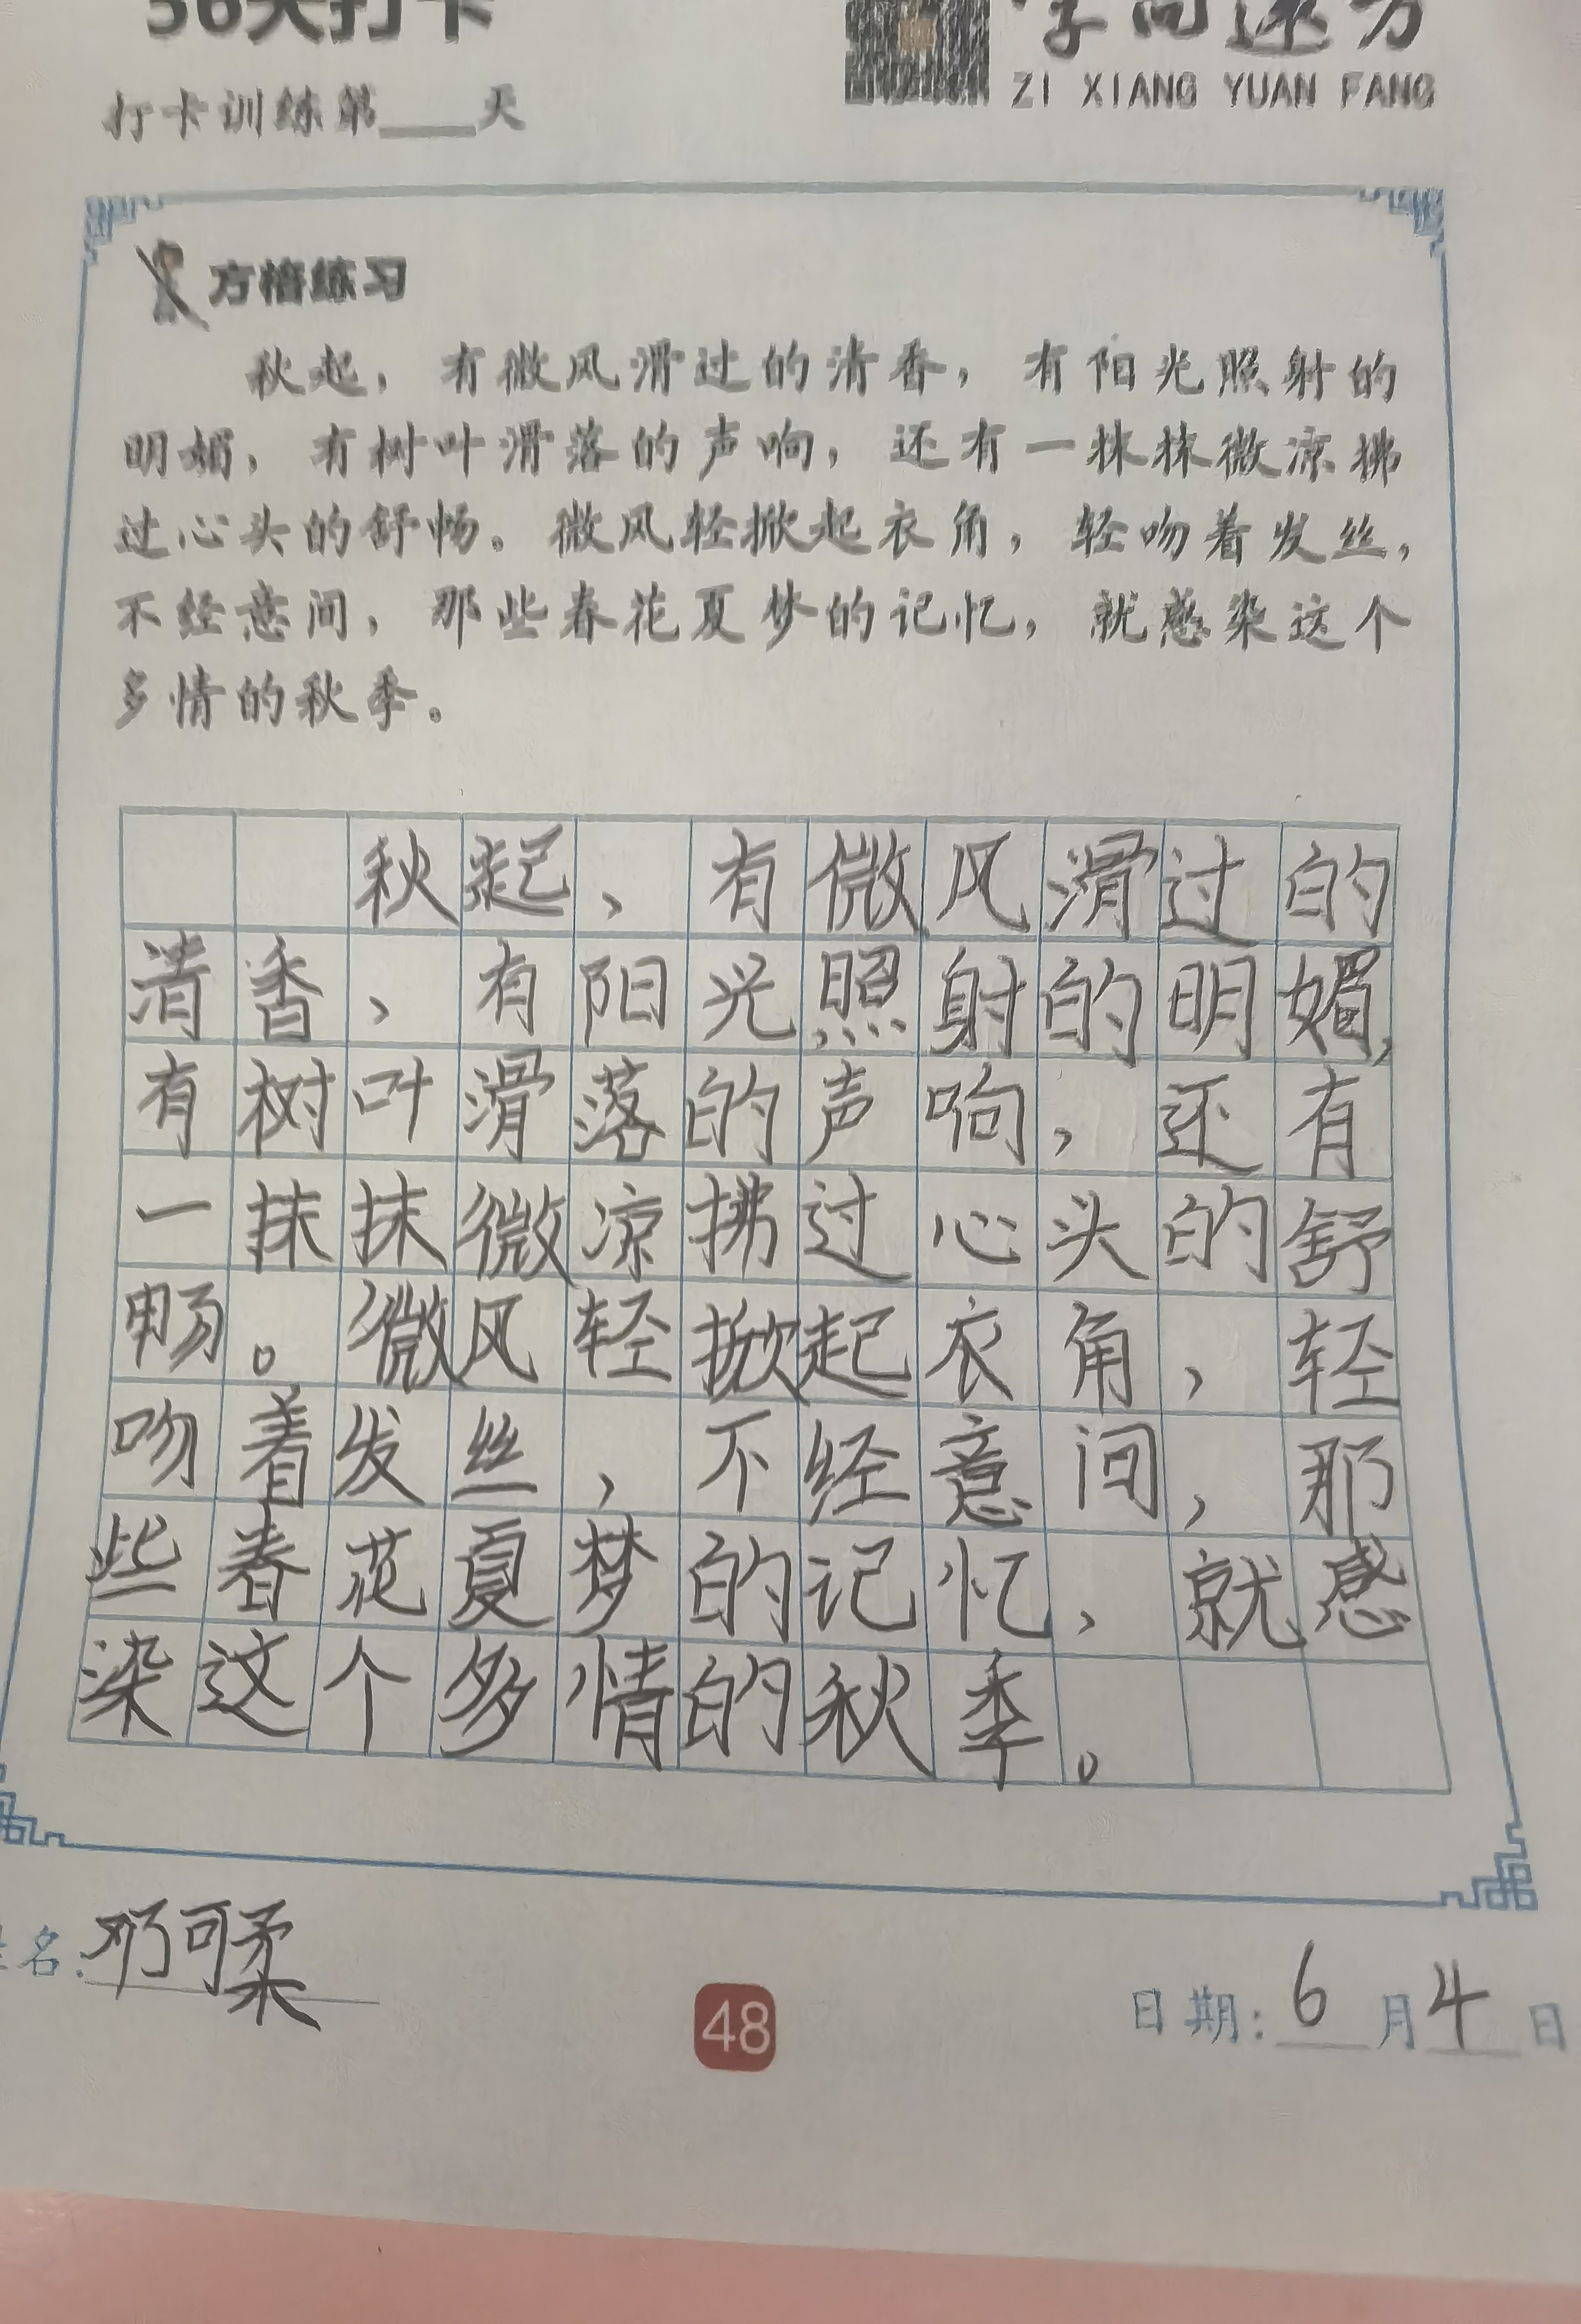 36天打卡
字向远方
ZI XIANG YUAN FANG
打卡训练第____天
方格练习
秋起，有微风滑过的清香，有阳光照射的
明媚，有树叶滑落的声响，还有一抹抹微凉拂
过心头的舒畅。微风轻掀起衣角，轻吻着发丝，
不经意间，那些春花夏梦的记忆，就感染这个
多情的秋季。
秋起、有微风滑过的
清香、有阳光照射的明媚,
有树叶滑落的声响，还有
一抹抹微凉拂过心头的舒
畅。微风轻掀起衣角，轻
吻着发丝，不经意间，那
些春花夏梦的记忆，就感
染这个多情的秋季。
姓名:邓可柔
48
日期:6月4日